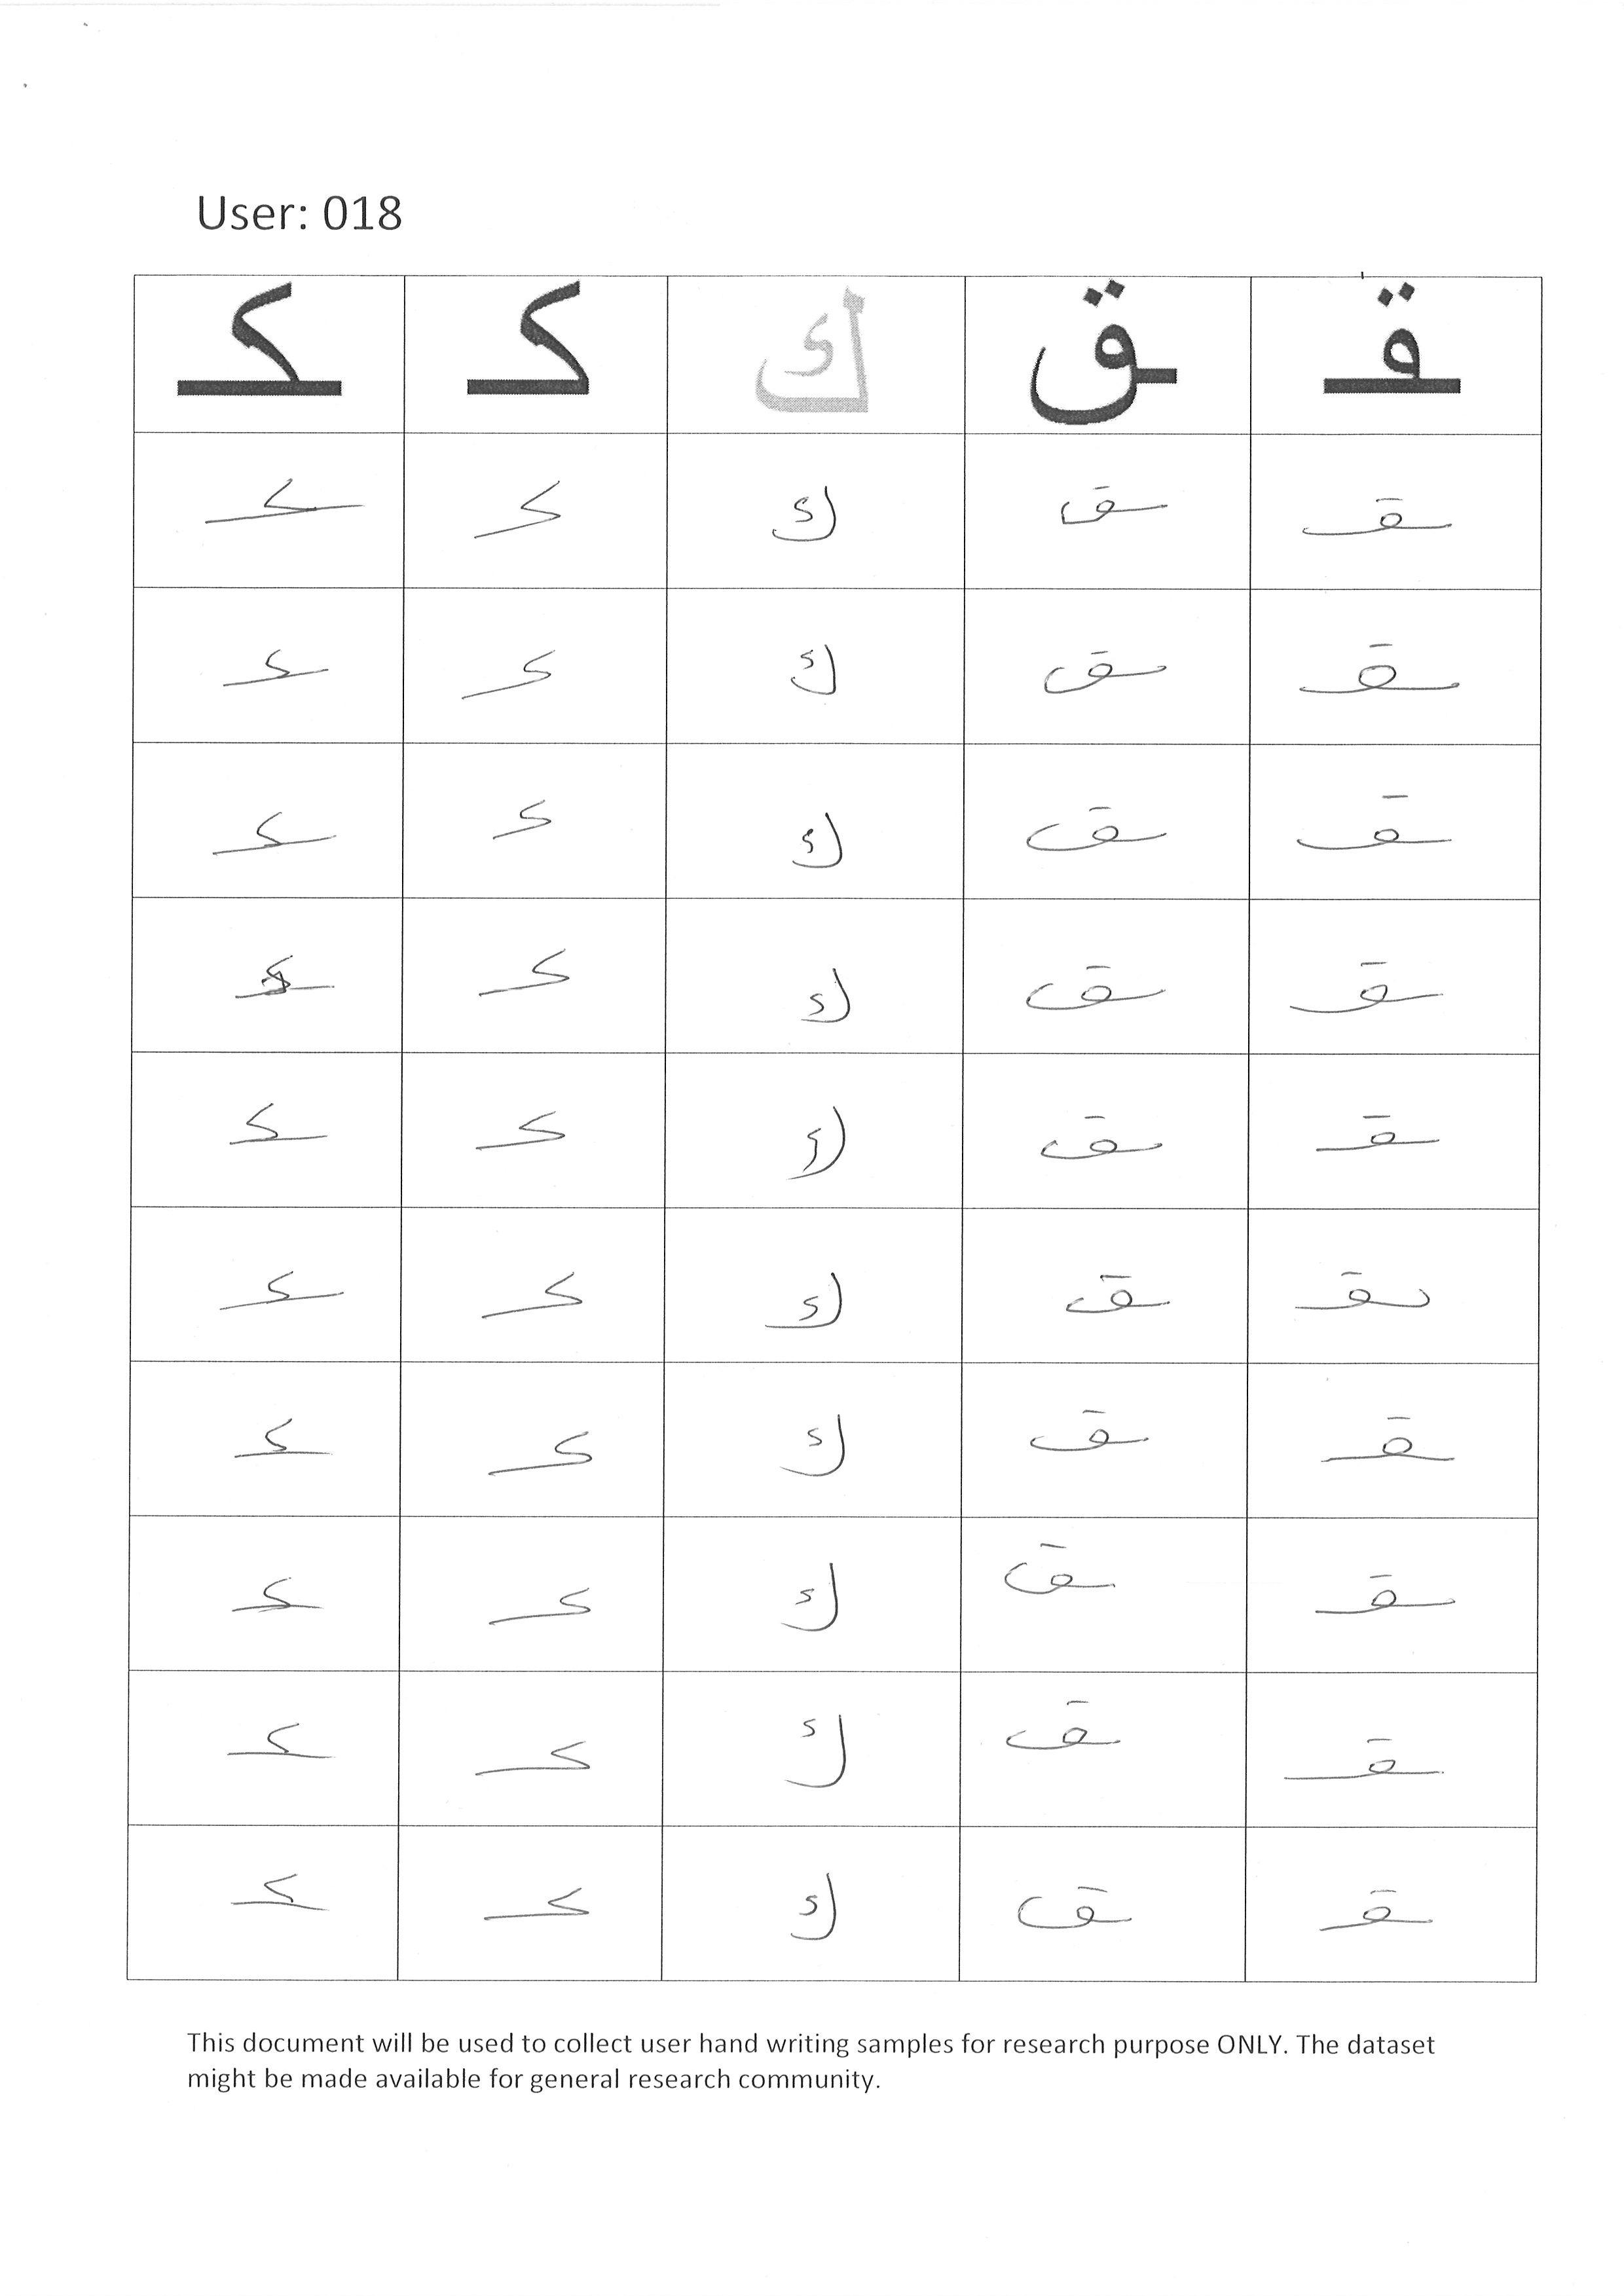 User: 018
ـقـ ـق ك كـ ـكـ
ـقـ ـق ك كـ ـكـ
ـقـ ـق ك كـ ـكـ
ـقـ ـق ك كـ ـكـ
ـقـ ـق ك كـ ـكـ
ـقـ ـق ك كـ ـكـ
ـقـ ـق ك كـ ـكـ
ـقـ ـق ك كـ ـكـ
ـقـ ـق ك كـ ـكـ
ـقـ ـق ك كـ ـكـ
ـقـ ـق ك كـ ـكـ
This document will be used to collect user hand writing samples for research purpose ONLY. The dataset
might be made available for general research community.